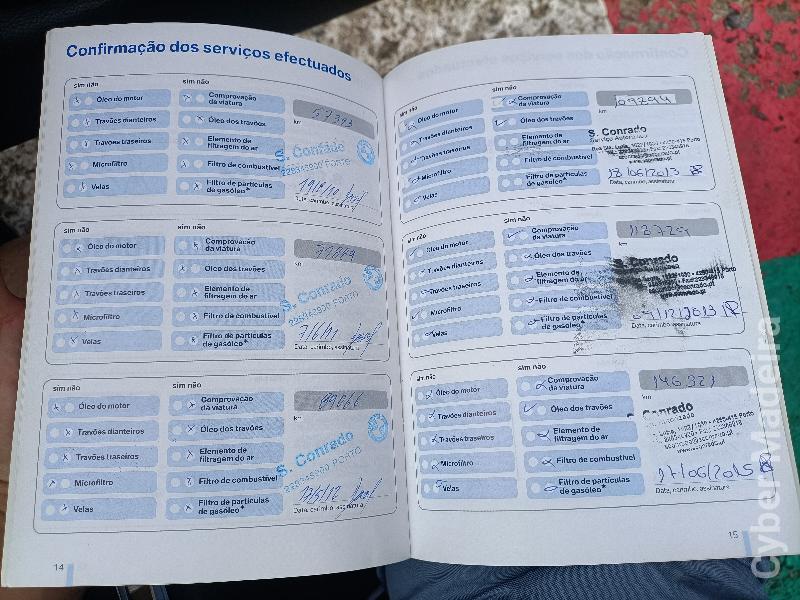 Confirmação dos serviços efectuados
sim não
sim não
Óleo do motor
Comprovação
da viatura
57393
km
Travões dianteiros
Óleo dos travões
Travões traseiros
Elemento de
filtragem do ar
S. Conrado
Microfiltro
Filtro de combustível
226349930 PORTO
Velas
Filtro de partículas
de gasóleo*
Data, carimbo, assinatura
sim não
sim não
Óleo do motor
Comprovação
da viatura
km
Travões dianteiros
Óleo dos travões
Travões traseiros
Elemento de
filtragem do ar
S. Conrado
Microfiltro
Filtro de combustível
226349930 PORTO
Velas
Filtro de partículas
de gasóleo*
7/6/11
Data, carimbo, assinatura
sim não
sim não
Óleo do motor
Comprovação
da viatura
89066
km
Travões dianteiros
Óleo dos travões
Travões traseiros
Elemento de
filtragem do ar
S. Conrado
Microfiltro
Filtro de combustível
226349930 PORTO
Velas
Filtro de partículas
de gasóleo*
Data, carimbo, assinatura
14
sim não
sim não
Óleo do motor
Comprovação
da viatura
109294
km
Travões dianteiros
Óleo dos travões
Travões traseiros
Elemento de
filtragem do ar
S. Conrado
Microfiltro
Filtro de combustível
Velas
Filtro de partículas
de gasóleo*
18/06/2013
Data, carimbo, assinatura
sim não
sim não
Óleo do motor
Comprovação
da viatura
km
Travões dianteiros
Óleo dos travões
Travões traseiros
Elemento de
filtragem do ar
S. Conrado
Microfiltro
Filtro de combustível
Velas
Filtro de partículas
de gasóleo*
Data, carimbo, assinatura
sim não
sim não
Óleo do motor
Comprovação
da viatura
146321
km
Travões dianteiros
Óleo dos travões
Travões traseiros
Elemento de
filtragem do ar
Conrado
Microfiltro
Filtro de combustível
Velas
Filtro de partículas
de gasóleo*
17/06/2015
Data, carimbo, assinatura
15
CyberMadeira